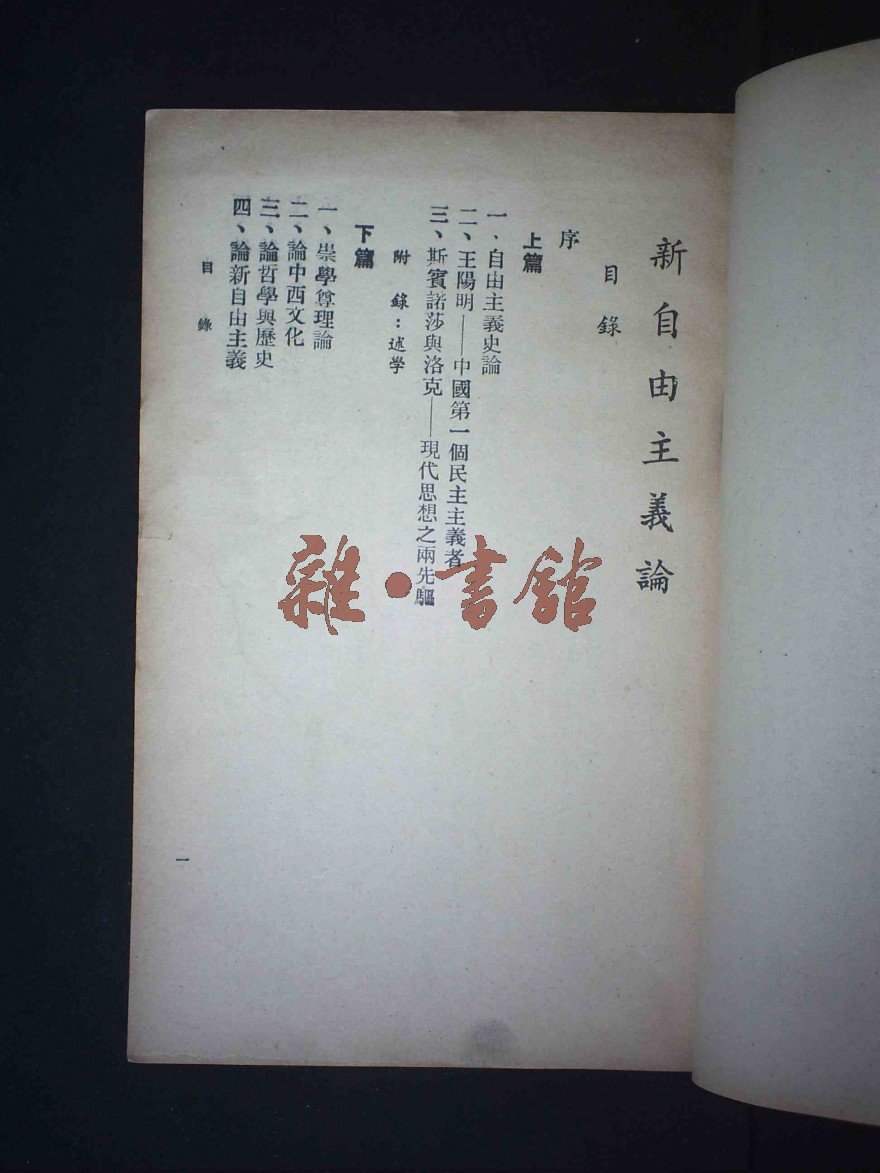 新自由主義論
目錄
序
上篇
一、自由主義史論
二、王陽明——中國第一個民主主義者
三、斯賓諾莎與洛克——現代思想之兩先驅
附錄：述学
下篇
一、崇學尊理論
二、論中西文化
三、論哲學與歷史
四、論新自由主義
目錄
一
雜·書館